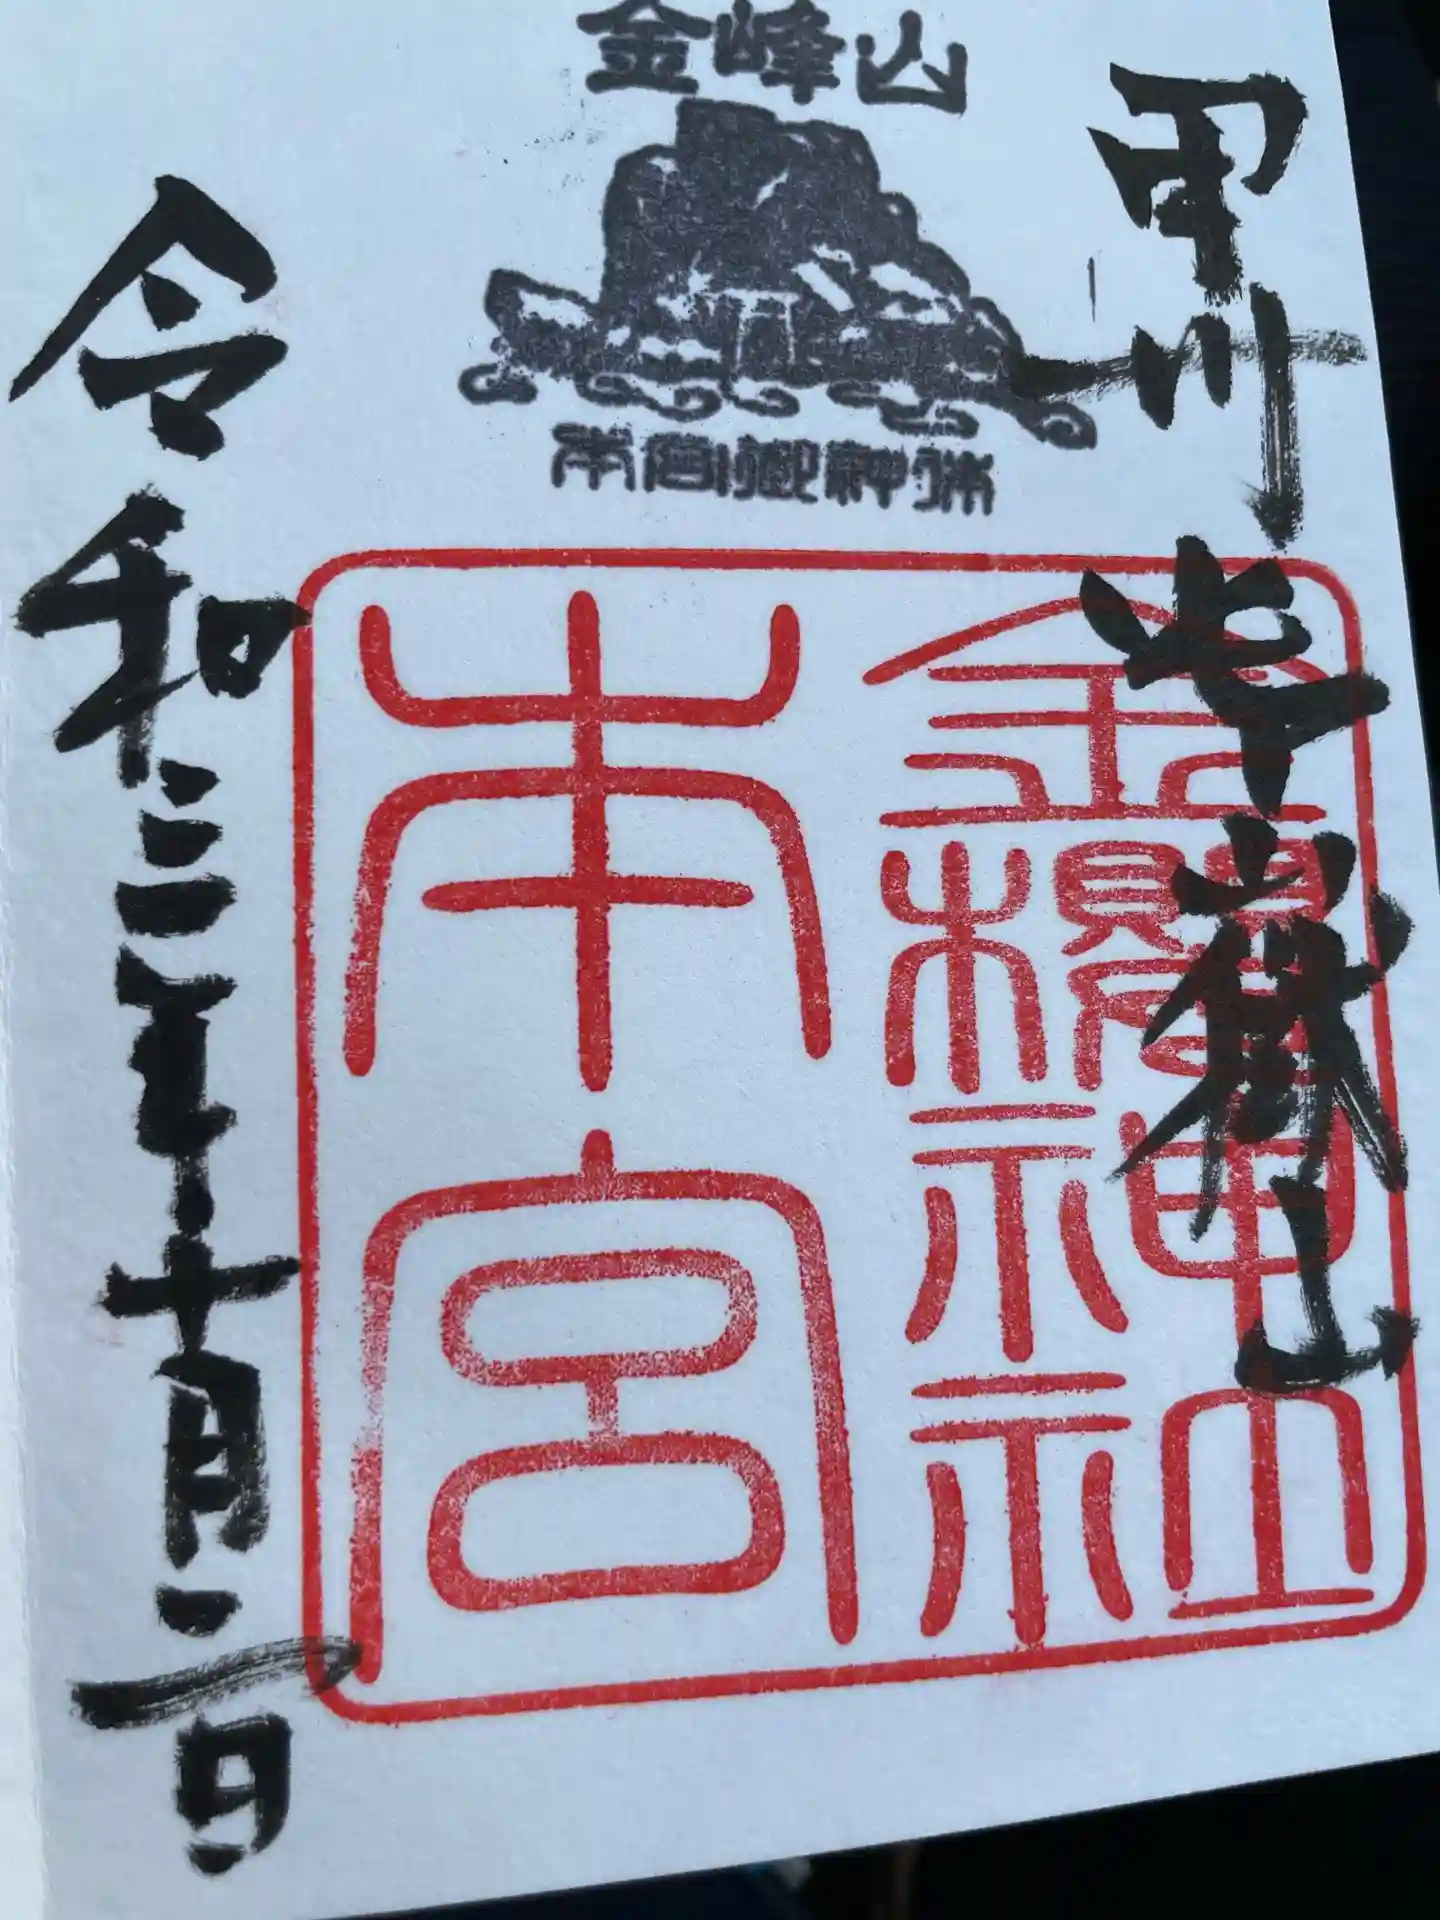 金峰山
本宮御神体
甲州御嶽山
金櫻神社
本宮
令和三年十月二日